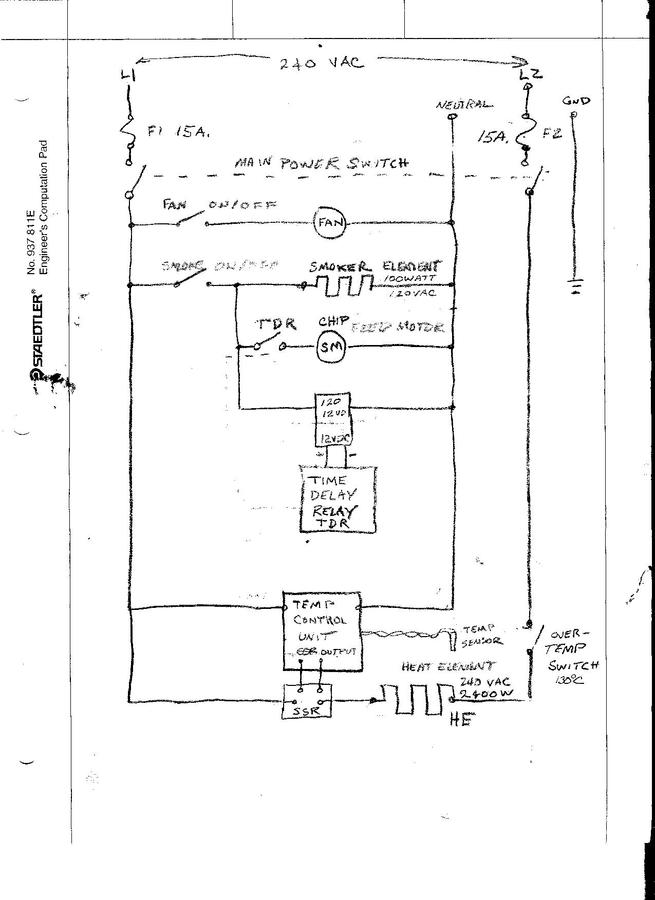 240 VAC
L1
L2
NEUTRAL
GND
F1 15A.
15A. F2
MAIN POWER SWITCH
FAN ON/OFF
FAN
SMOKE ON/OFF
SMOKER ELEMENT
100WATT
120VAC
TDR
CHIP FEED MOTOR
SM
120
12VDC
TIME
DELAY
RELAY
TDR
TEMP
CONTROL
UNIT
SSR OUTPUT
TEMP
SENSOR
OVER-
TEMP
SWITCH
130°C
HEAT ELEMENT
240 VAC
2400W
HE
SSR
STAEDTLER® No. 937 811E
Engineer's Computation Pad